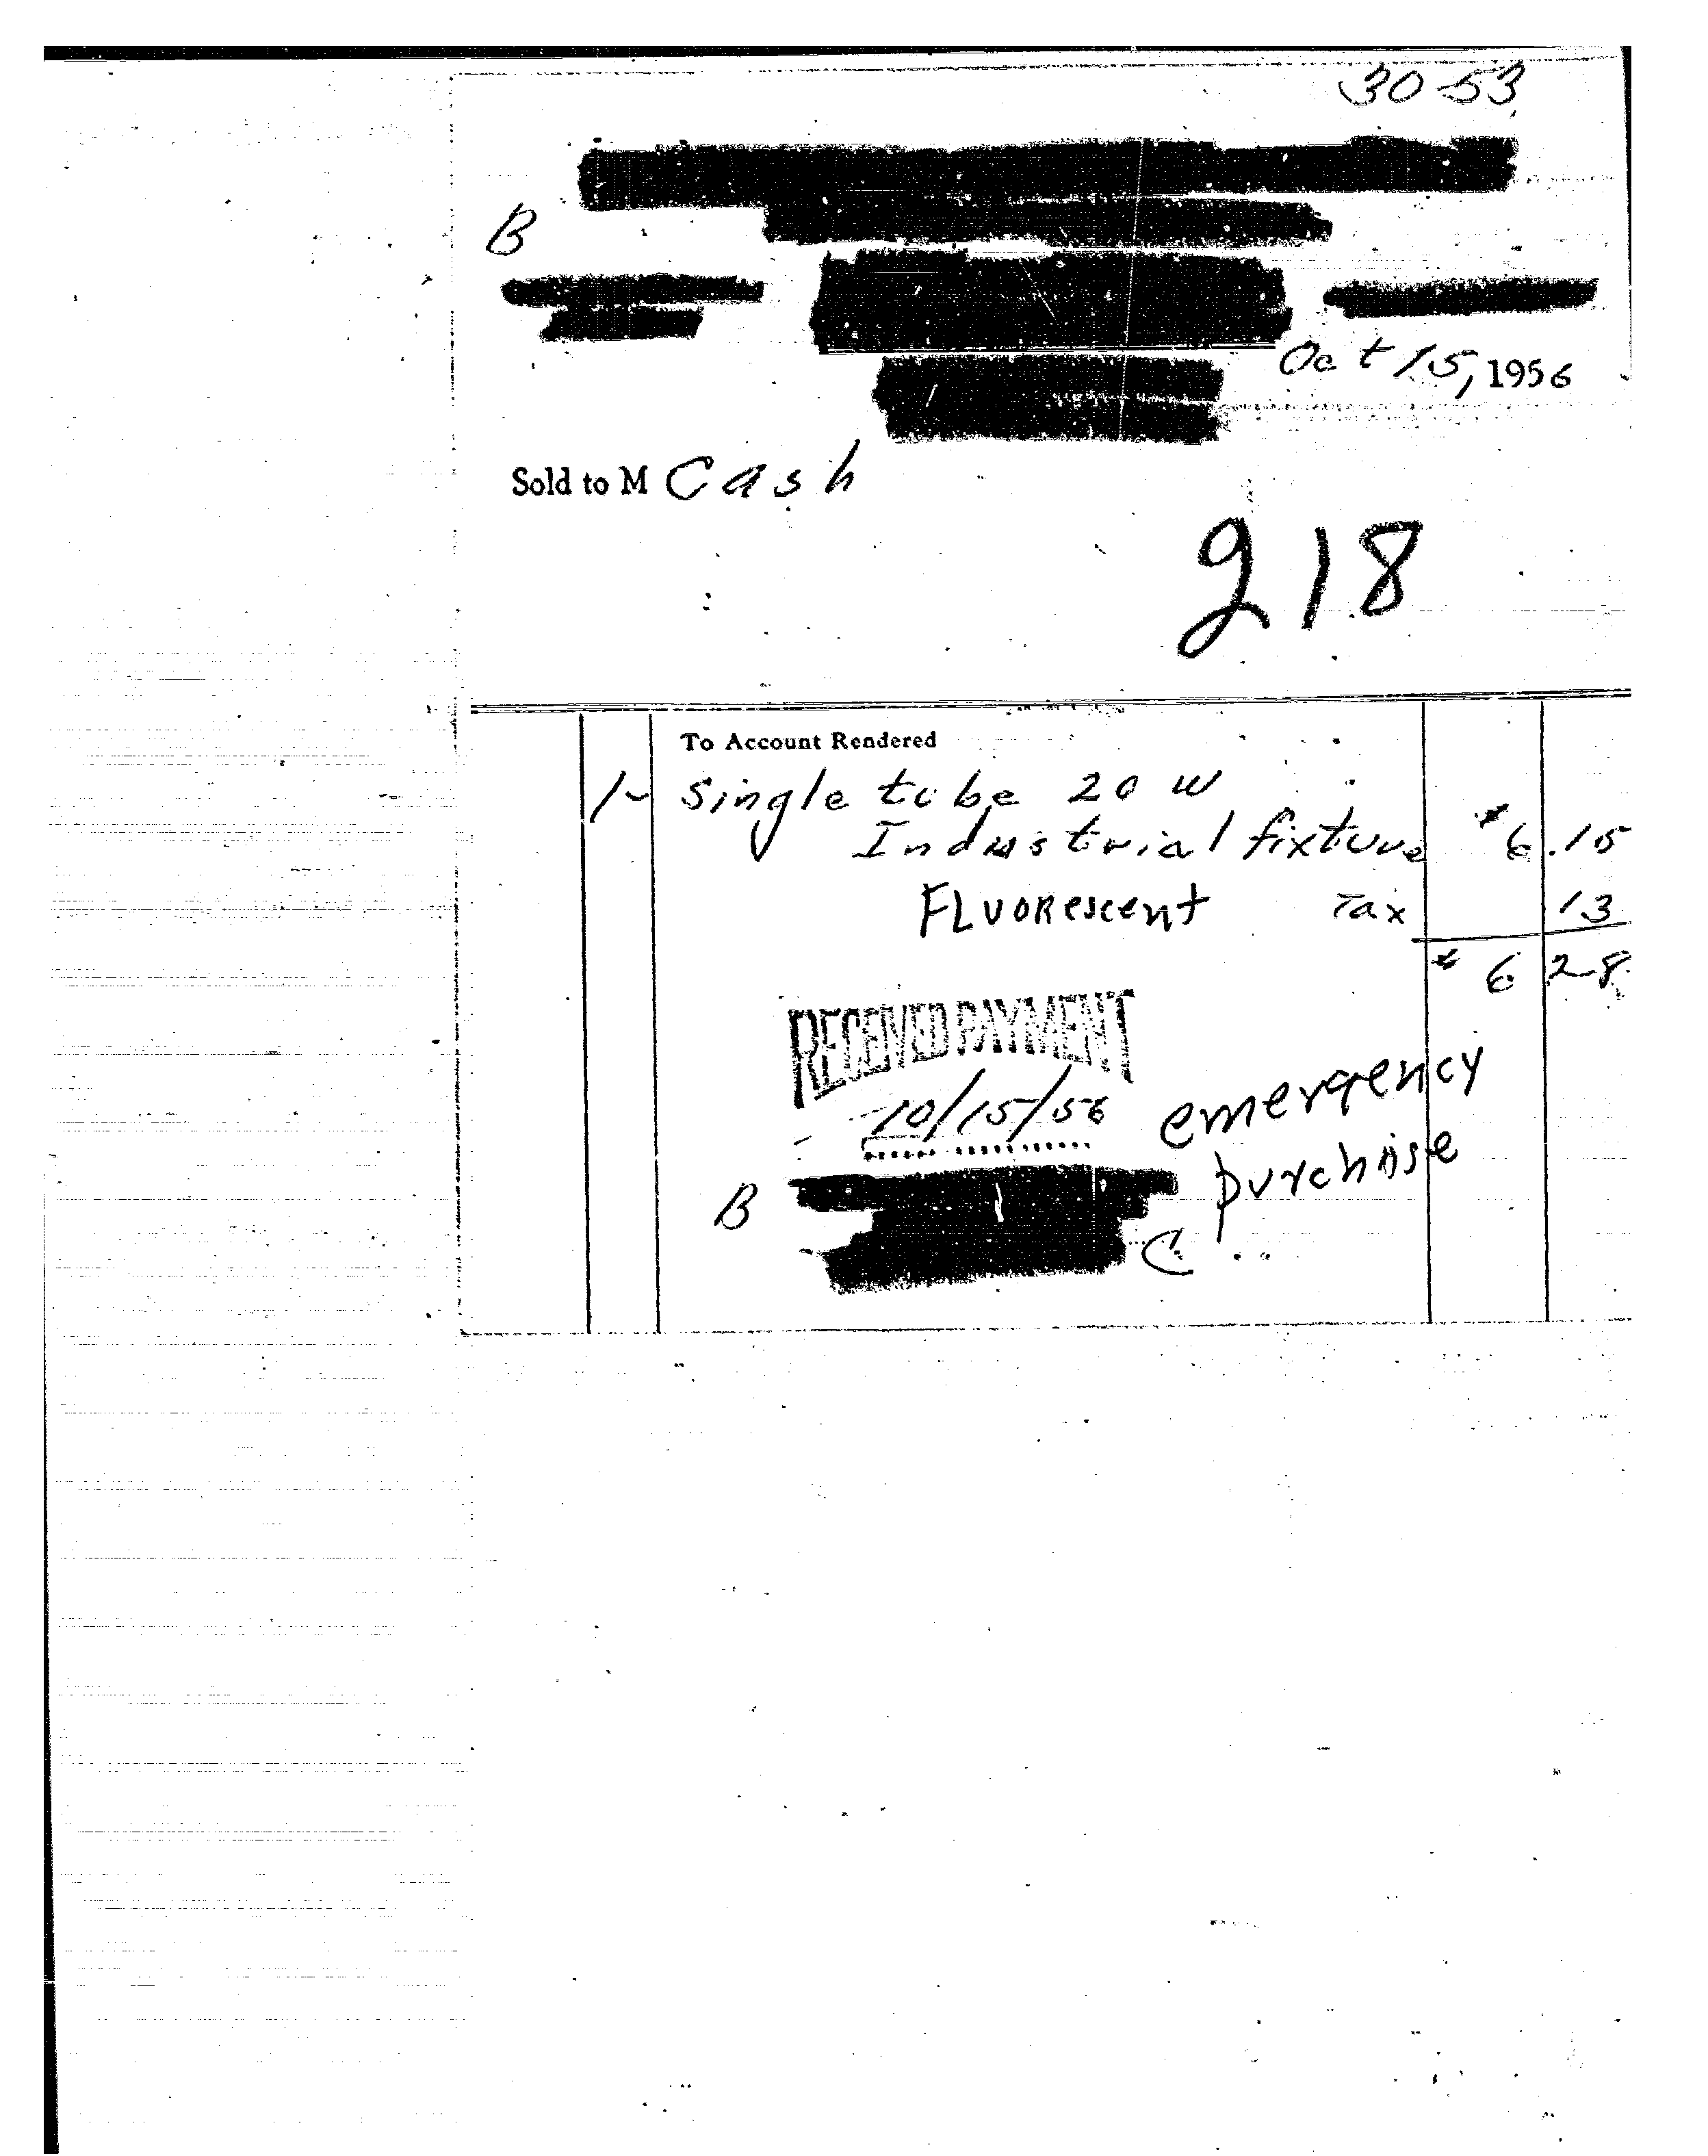 30-53
B
Oct 15, 1956
Sold to M Cash
218
To Account Rendered
1- Single tube 20 W
Industrial fixture $6.15
FLuorescent Tax 13
$ 6 28
RECEIVED PAYMENT
10/15/56
emergency
purchase
B
C